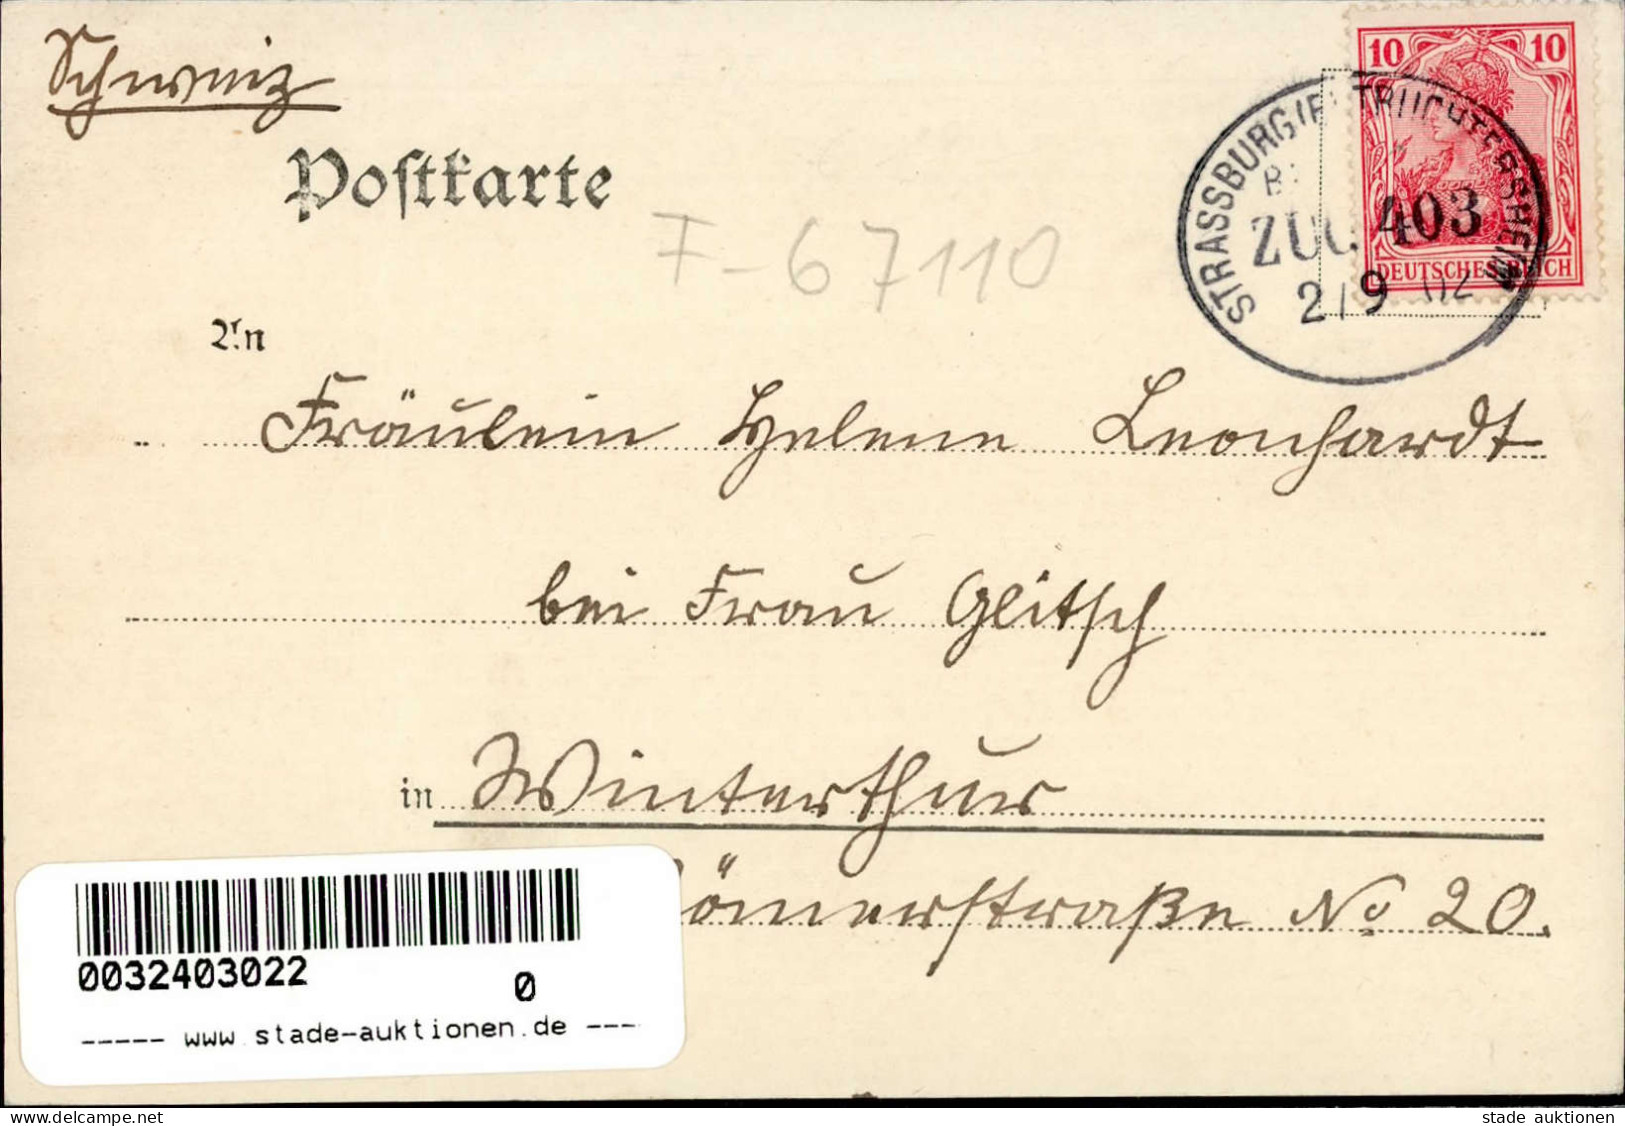 Schweiz
Postkarte
10 10
DEUTSCHES REICH
STRASSBURG (E TRUCHTERSHEIM
ZUG 403
2/9 02
F-67110
An
Fräulein Helene Leonhardt
bei Frau Glitsch
in Winterthur
ömerstraße No 20.
0032403022
0
----- www.stade-auktionen.de ---
www.delcampe.net
stade auktionen